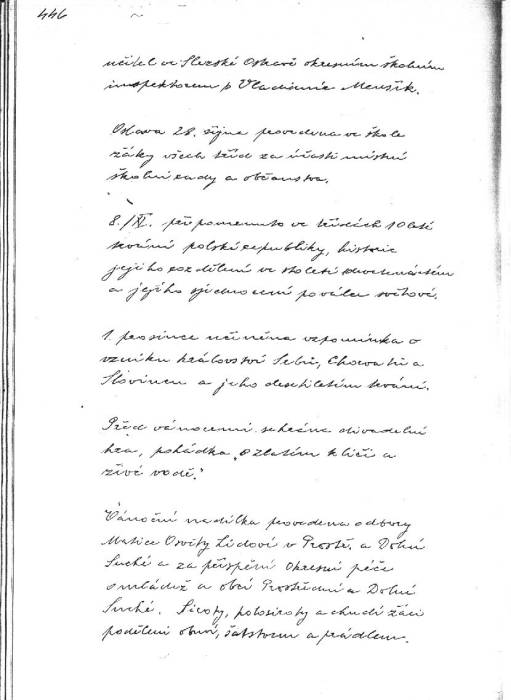 446
učitel ve Slezské Ostravě okresním školním
inspektorem p. Vladimír Menšík.
Oslava 28. října provedena ve škole
žáky všech tříd za účasti místní
školní rady a občanstva.
8./XI. připomenuto ve třídách 10leté
trvání polské republiky, historie
jejího rozdělení ve století
a jejího sjednocení po válce světové.
1. prosince učiněna vzpomínka o
vzniku království Srbů, Chorvatů a
Slovinců a jeho desítiletém trvání.
Před vánocemi sehrána divadelní
hra, pohádka „O zlatém klíči a
živé vodě."
Vánoční nadílka provedena odbory
Matice Osvěty Lidové v Prostř. a Dolní
Suché a za přispění Okresní péče
o mládež a obcí Prostřední a Dolní
Suché. Siroty, polosiroty a chudí žáci
poděleni obuví, šatstvem a prádlem.